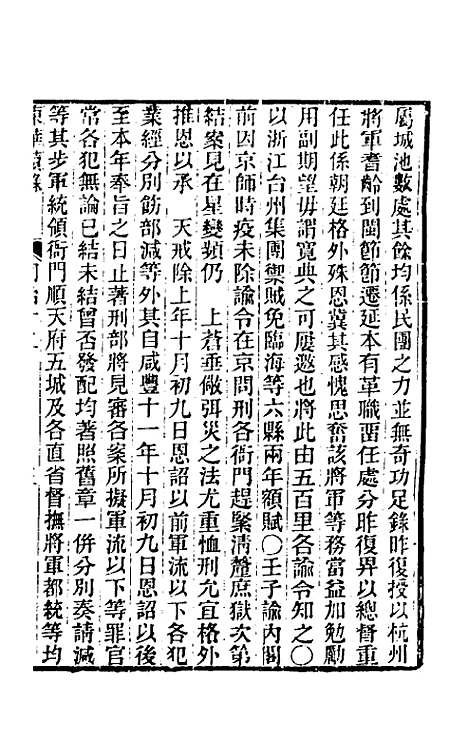 屬城池數處其餘均係民團之力並無奇功足錄昨復授以杭州
將軍耆齡到閩節節遷延本有革職畱任處分昨復畀以總督重
任此係朝廷格外殊恩冀其感愧思奮該將軍等務當益加勉勵
用副期望毋謂寬典之可屢邀也將此由五百里各諭令知之〇
以浙江台州集團禦賊免臨海等六縣兩年額賦〇壬子諭內閣
前因京師時疫未除諭令在京問刑各衙門趕緊清釐庶獄次第
結案見在星變頻仍　上蒼垂儆弭災之法尤重恤刑允宜格外
推恩以承　天戒除上年十月初九日恩詔以前軍流以下各犯
業經分別飭部減等外其自咸豐十一年十月初九日恩詔以後
至本年奉旨之日止著刑部將見審各案所擬軍流以下等罪官
常各犯無論已結未結曾否發配均著照舊章一併分別奏請減
等其步軍統領衙門順天府五城及各直省督撫將軍都統等均
東華續錄